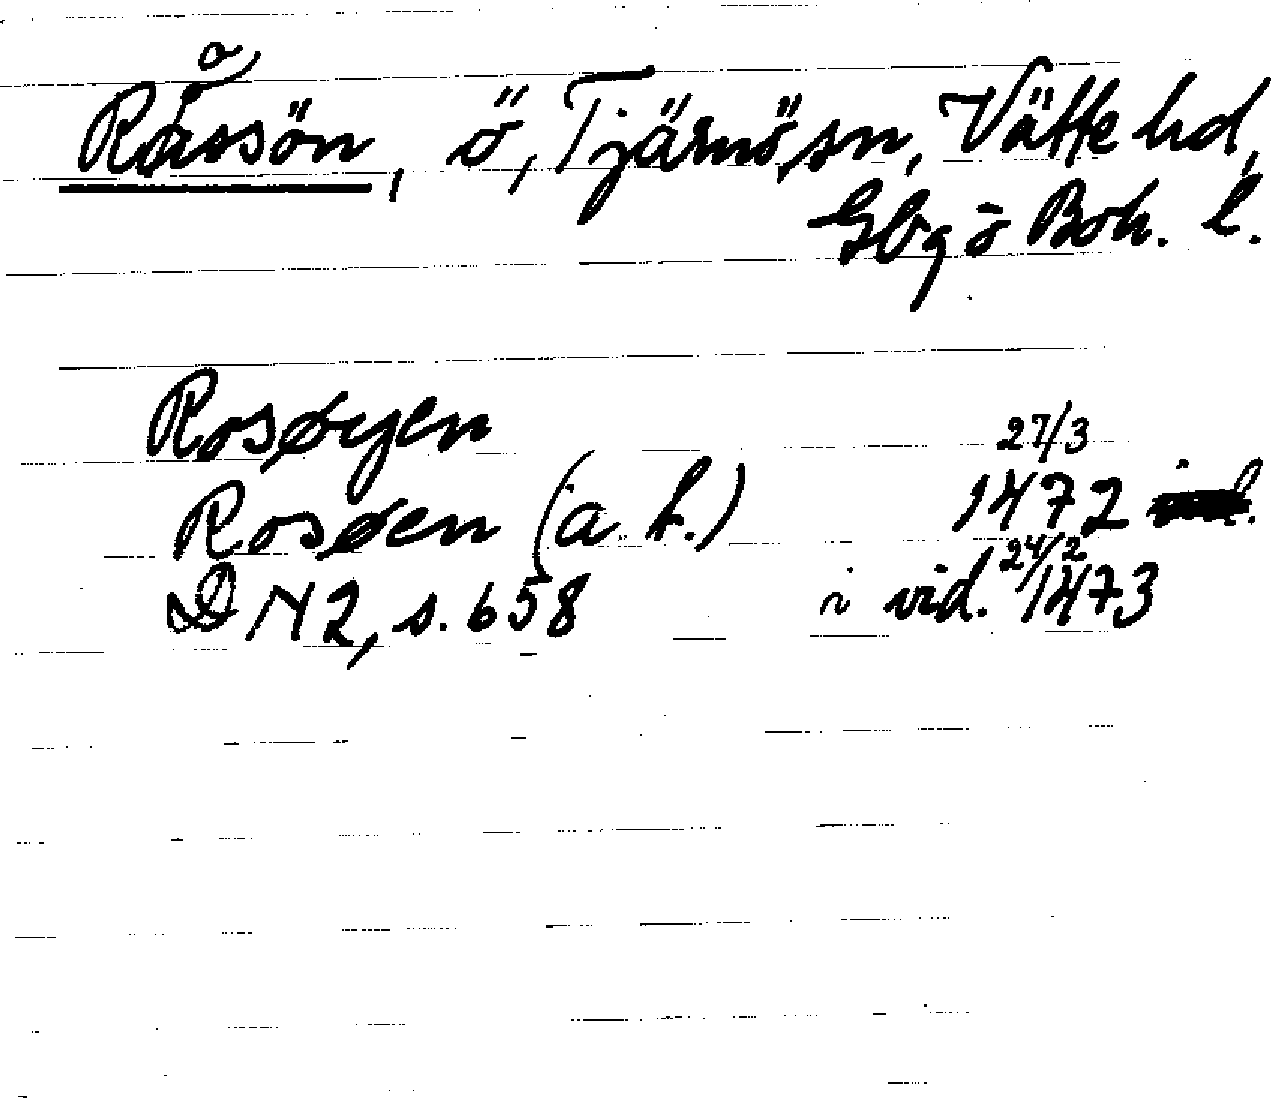 Råssön, ö, Tjärnö sn, Vätte hd,
Gbg o Boh. l.
Rosøyen 27/3
Rosøen (a. h.) 1472
DN 2, s. 658 i vid. 24/2 1473